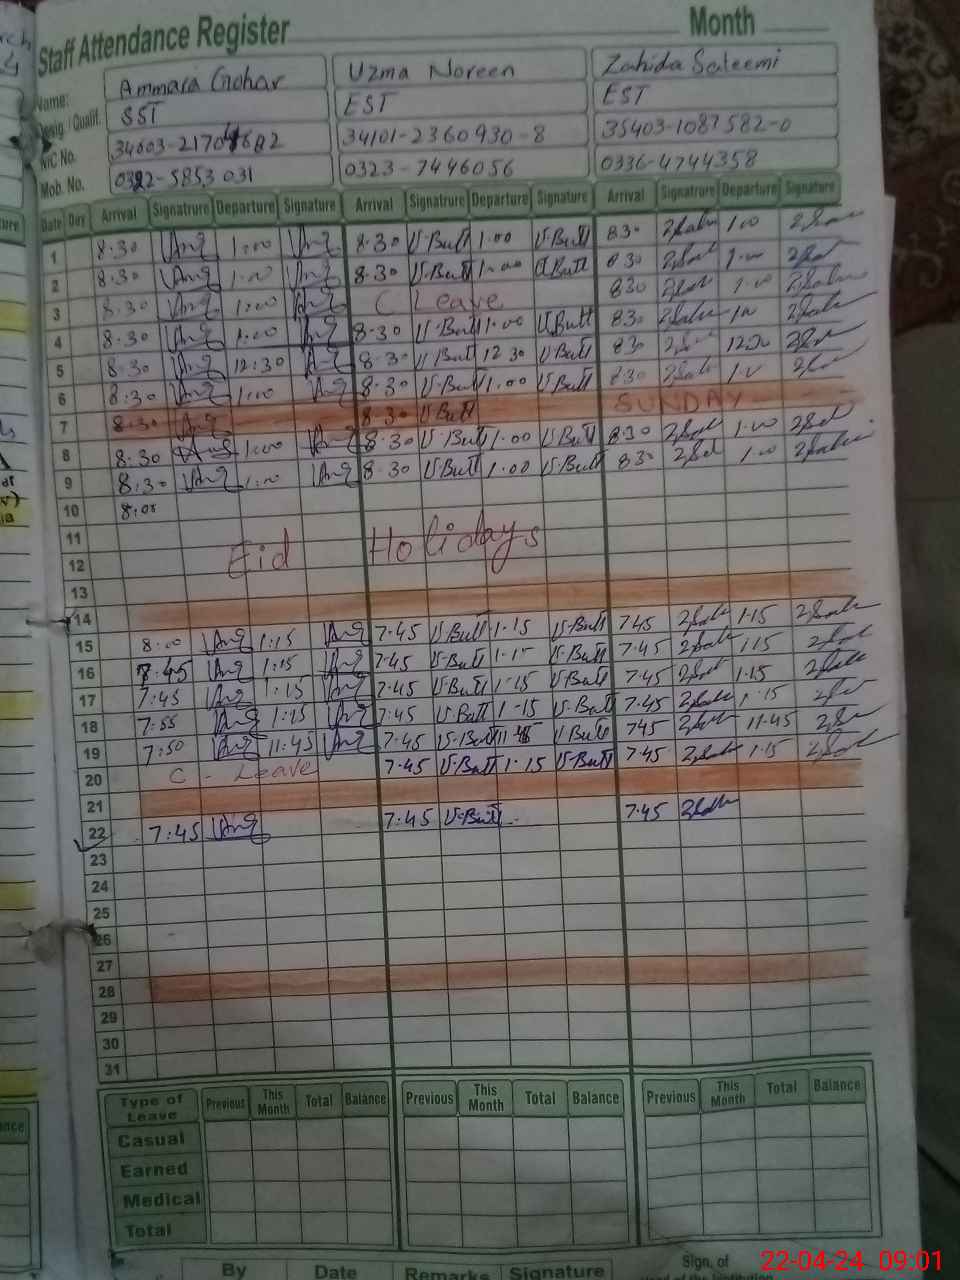 Staff Attendance Register Month
Name: Ammara Gohar Uzma Noreen Zahida Saleemi
Desig. / Qualif. SST EST EST
NIC No. 34101-2360930-8 35403-1087582-0
Mob. No. 0323-7446056 0336-4744358
Date Day Arrival Signatrure Departure Signature Arrival Signatrure Departure Signature Arrival Signatrure Departure Signature
1 8.30 1:00 8.30 U-Butt 1.00 U-Butt 8.30 1.00
2 8.30 1.00 8.30 U-Butt 1.00 U-Butt 8.30 1.00
3 8.30 1:00 C Leave 8.30 1.00
4 8.30 1:00 8.30 U-Butt 1.00 U-Butt 8.30 1.00
5 8.30 12:30 8.30 U-Butt 12.30 U-Butt 8.30
6 8:30 1:00 8.30 U-Butt 1.00 U-Butt 8.30
7 8:30 8.30 U-Butt SUNDAY
8 8:30 1:00 8.30 U-Butt 1.00 U-Butt 8.30 1.00
9 8:30 1:00 8.30 U-Butt 1.00 U-Butt 8.30 1.00
10 8:00
11
12 Eid Holidays
13
14
15 8:00 1:15 7.45 U-Butt 1.15 U-Butt 7.45 1.15
16 7:45 1:15 7.45 U-Butt 1.15 U-Butt 7.45 1.15
17 7:45 1:15 7.45 U-Butt 1.15 U-Butt 7.45 1.15
18 7:55 1:15 7.45 U-Butt 1-15 U-Butt 7.45 1.15
19 7:50 11:45 7.45 U-Butt 11.45 U-Butt 7.45 11.45
20 C - Leave 7.45 U-Butt 1.15 U-Butt 7.45 1.15
21
22 7:45 7.45 U-Butt 7.45
23
24
25
26
27
28
29
30
31
Type of Leave Previous This Month Total Balance Previous This Month Total Balance Previous This Month Total Balance
Casual
Earned
Medical
Total
By Date Remarks Signature Sign. of
22-04-24 09:01